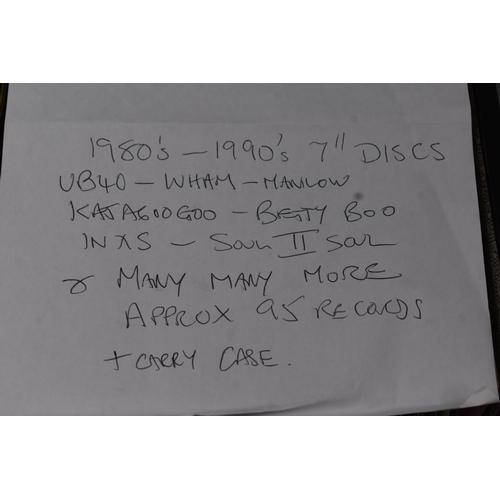 1980's - 1990's 7" DISCS
UB40 - WHAM - MANILOW
KAJAGOOGOO - BETTY BOO
INXS - SOUL II SOUL
& MANY MANY MORE
APPROX 95 RECORDS
+ CARRY CASE.